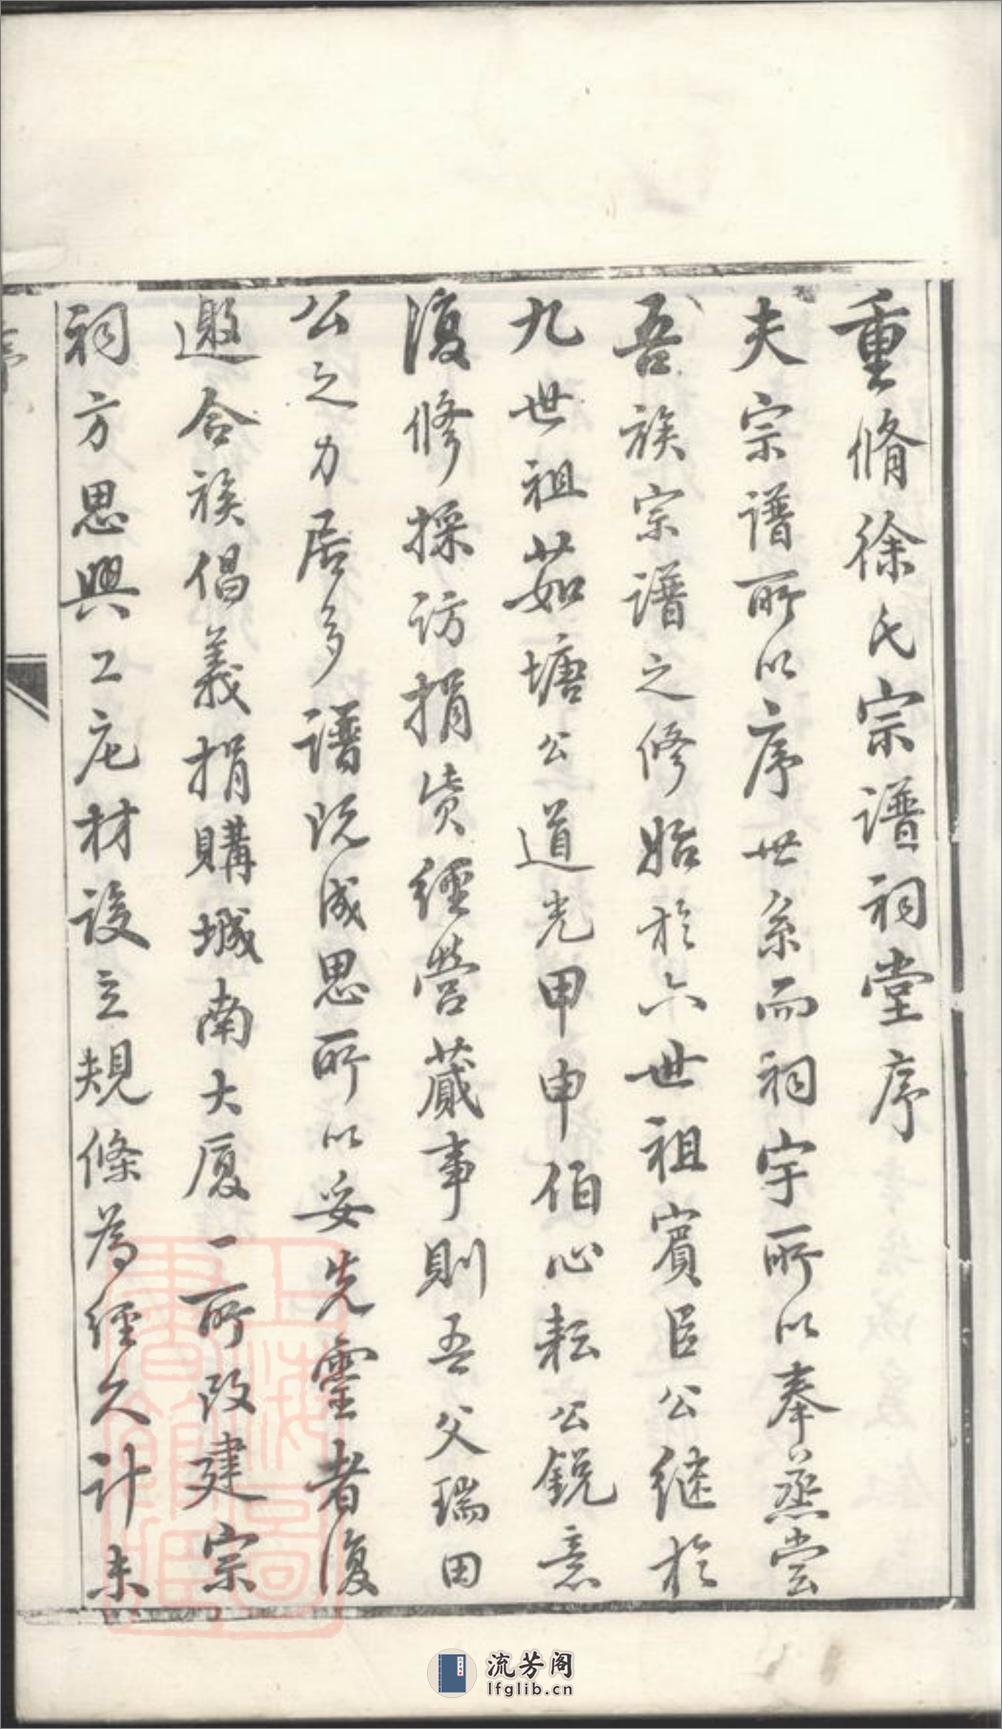 重脩徐氏宗譜祠堂序
夫宗譜所以序世系而祠宇所以奉烝嘗
吾族宗譜之修始於六世祖賓臣公継於
九世祖茹塘公道光甲申伯心耘公銳意
復修採访捐赀經營蕆事則吾父瑞田
公之力居多譜既成思所以妥先靈者復
邀合族倡義捐購城南大厦一所改建宗
祠方思興工庀材設立規條為經久計未
上海圖書館藏
流芳阁
lfglib.cn